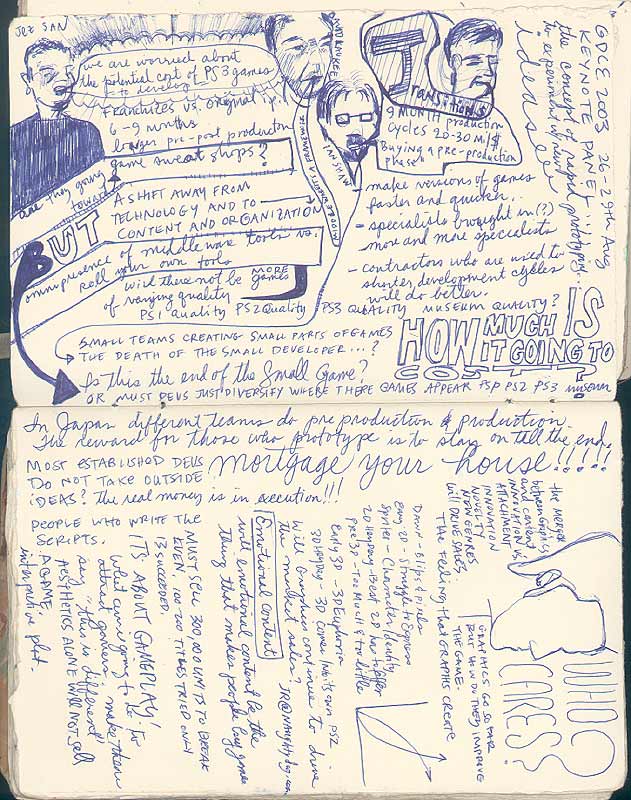 JEZ SAN
we are worried about
the potential cost of PS3 games
to develop
Franchizes vs. original i.p.
6-9 months
longer pre-post production
game sweat shops?
are they going
toward
BUT
A SHIFT AWAY FROM
TECHNOLOGY AND TO
CONTENT AND ORGANIZATION
omnipresence of middleware tools vs.
roll your own tools
will there not be
MORE
games
of varying quality
PS1 quality PS2 Quality PS3 QUALITY MUSEUM QUALITY?
SMALL TEAMS CREATING SMALL PARTS OF GAMES
THE DEATH OF THE SMALL DEVELOPER...?
Is this the end of the Small Game?
OR MUST DEVS JUST DIVERSIFY WHERE THERE GAMES APPEAR PSP PS2 PS3 museum
Transitions
9 MONTH production
Cycles 20-30 mil $.
Buying a pre-production
phase!
make versions of games
faster and quicker.
- specialists brought in(?)
more and more specialists
- contractors who are used to
shorter development cycles
will do better.
HOW MUCH IS
IT GOING TO
COST?
GDCE 2003 26-29th Aug
KEYNOTE PANEL
the concept of rapid prototyping...
to experiment w/ new
ideas
In Japan different teams do pre production & production.
The reward for those who prototype is to stay on till the end.
MOST ESTABLISHED DEVS
DO NOT TAKE OUTSIDE
IDEAS? The real money is in execution!!!
mortgage your house!!!!!
PEOPLE WHO WRITE THE
SCRIPTS.
the merger
between graphics
and content
INNOVATION VS.
ATTACHMENT
INNOVATION
NOVELTY
NEW GENRES
WILL DRIVE SALES.
THE Feeling that GRAPHICS CREATE
Dawn - Blips & Pixels
Early 2D - Struggle to Express
Sprites - Character Identity
2D Heyday - Best 2D has to offer
Pre 3D - Too Much & too little
Early 3D - 3D Euphoria
3D Heyday - 3D Comes Into its own PS2
Will Graphics continue to drive
the market sales?
Emotional Content
will emotional content be the
thing that makes people buy games
MUST SELL 300,000 UNITS TO BREAK
EVEN. 100-200 TITLES TRIED ONLY
13 SUCCEEDED.
ITS ABOUT GAMEPLAY!
What are we going to do to
attract gamers, make them
say "this is different"
AESTHETICS ALONE WILL NOT SELL
A GAME.
interactive plot.
GRAPHICS GO SO FAR
BUT HOW DO THEY IMPROVE
THE GAME.
WHO
CARES?